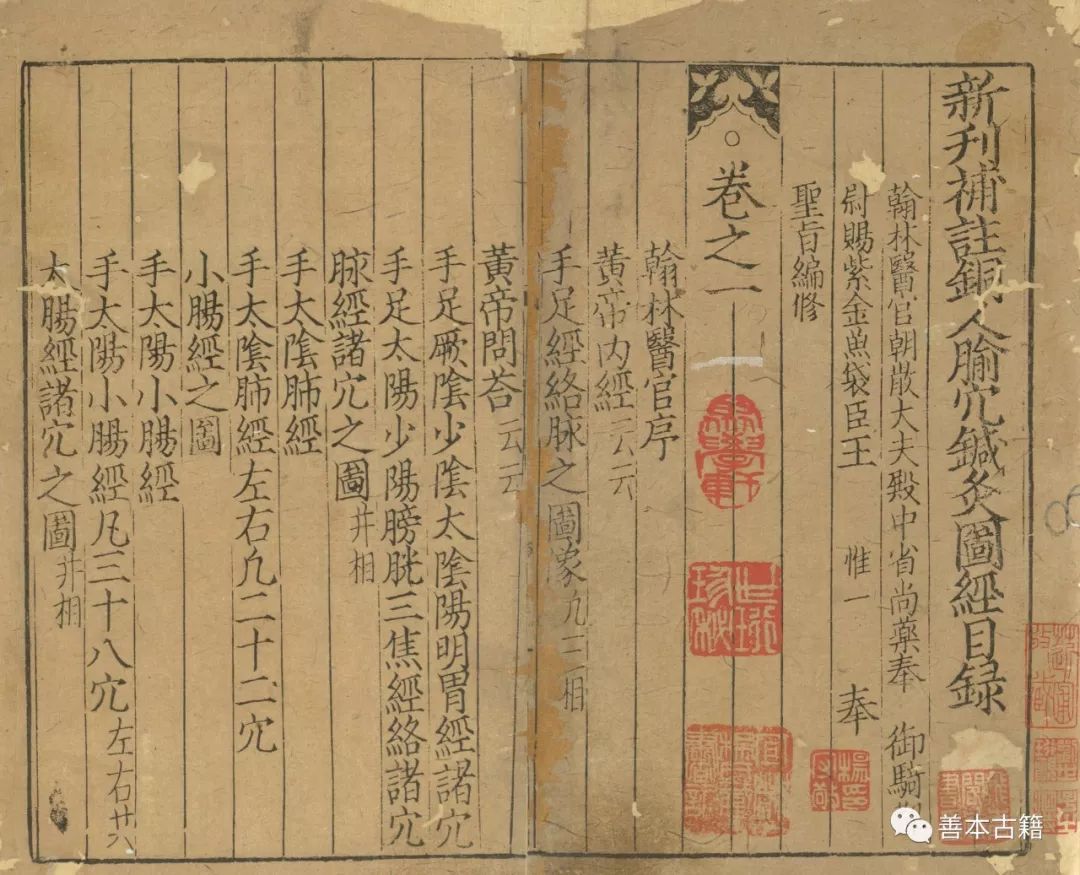 新刋補註銅人腧穴鍼灸圖經目録
翰林醫官朝散大夫殿中省尚藥奉 御騎
尉賜紫金魚袋臣王 惟一 奉
聖旨編修
卷之一
翰林醫官序
黄帝内經云云
手足經絡脉之圖象九三相
黄帝問荅云云
手足厥陰少陰太陰陽明胃經諸穴
手足太陽少陽膀胱三焦經絡諸穴
脉經諸穴之圖并相
手太陰肺經
手太陰肺經左右凢二十二穴
小腸經之圖
手太陽小腸經
手太陽小腸經凡三十八穴左右廿六
太腸經諸穴之圖并相
善本古籍